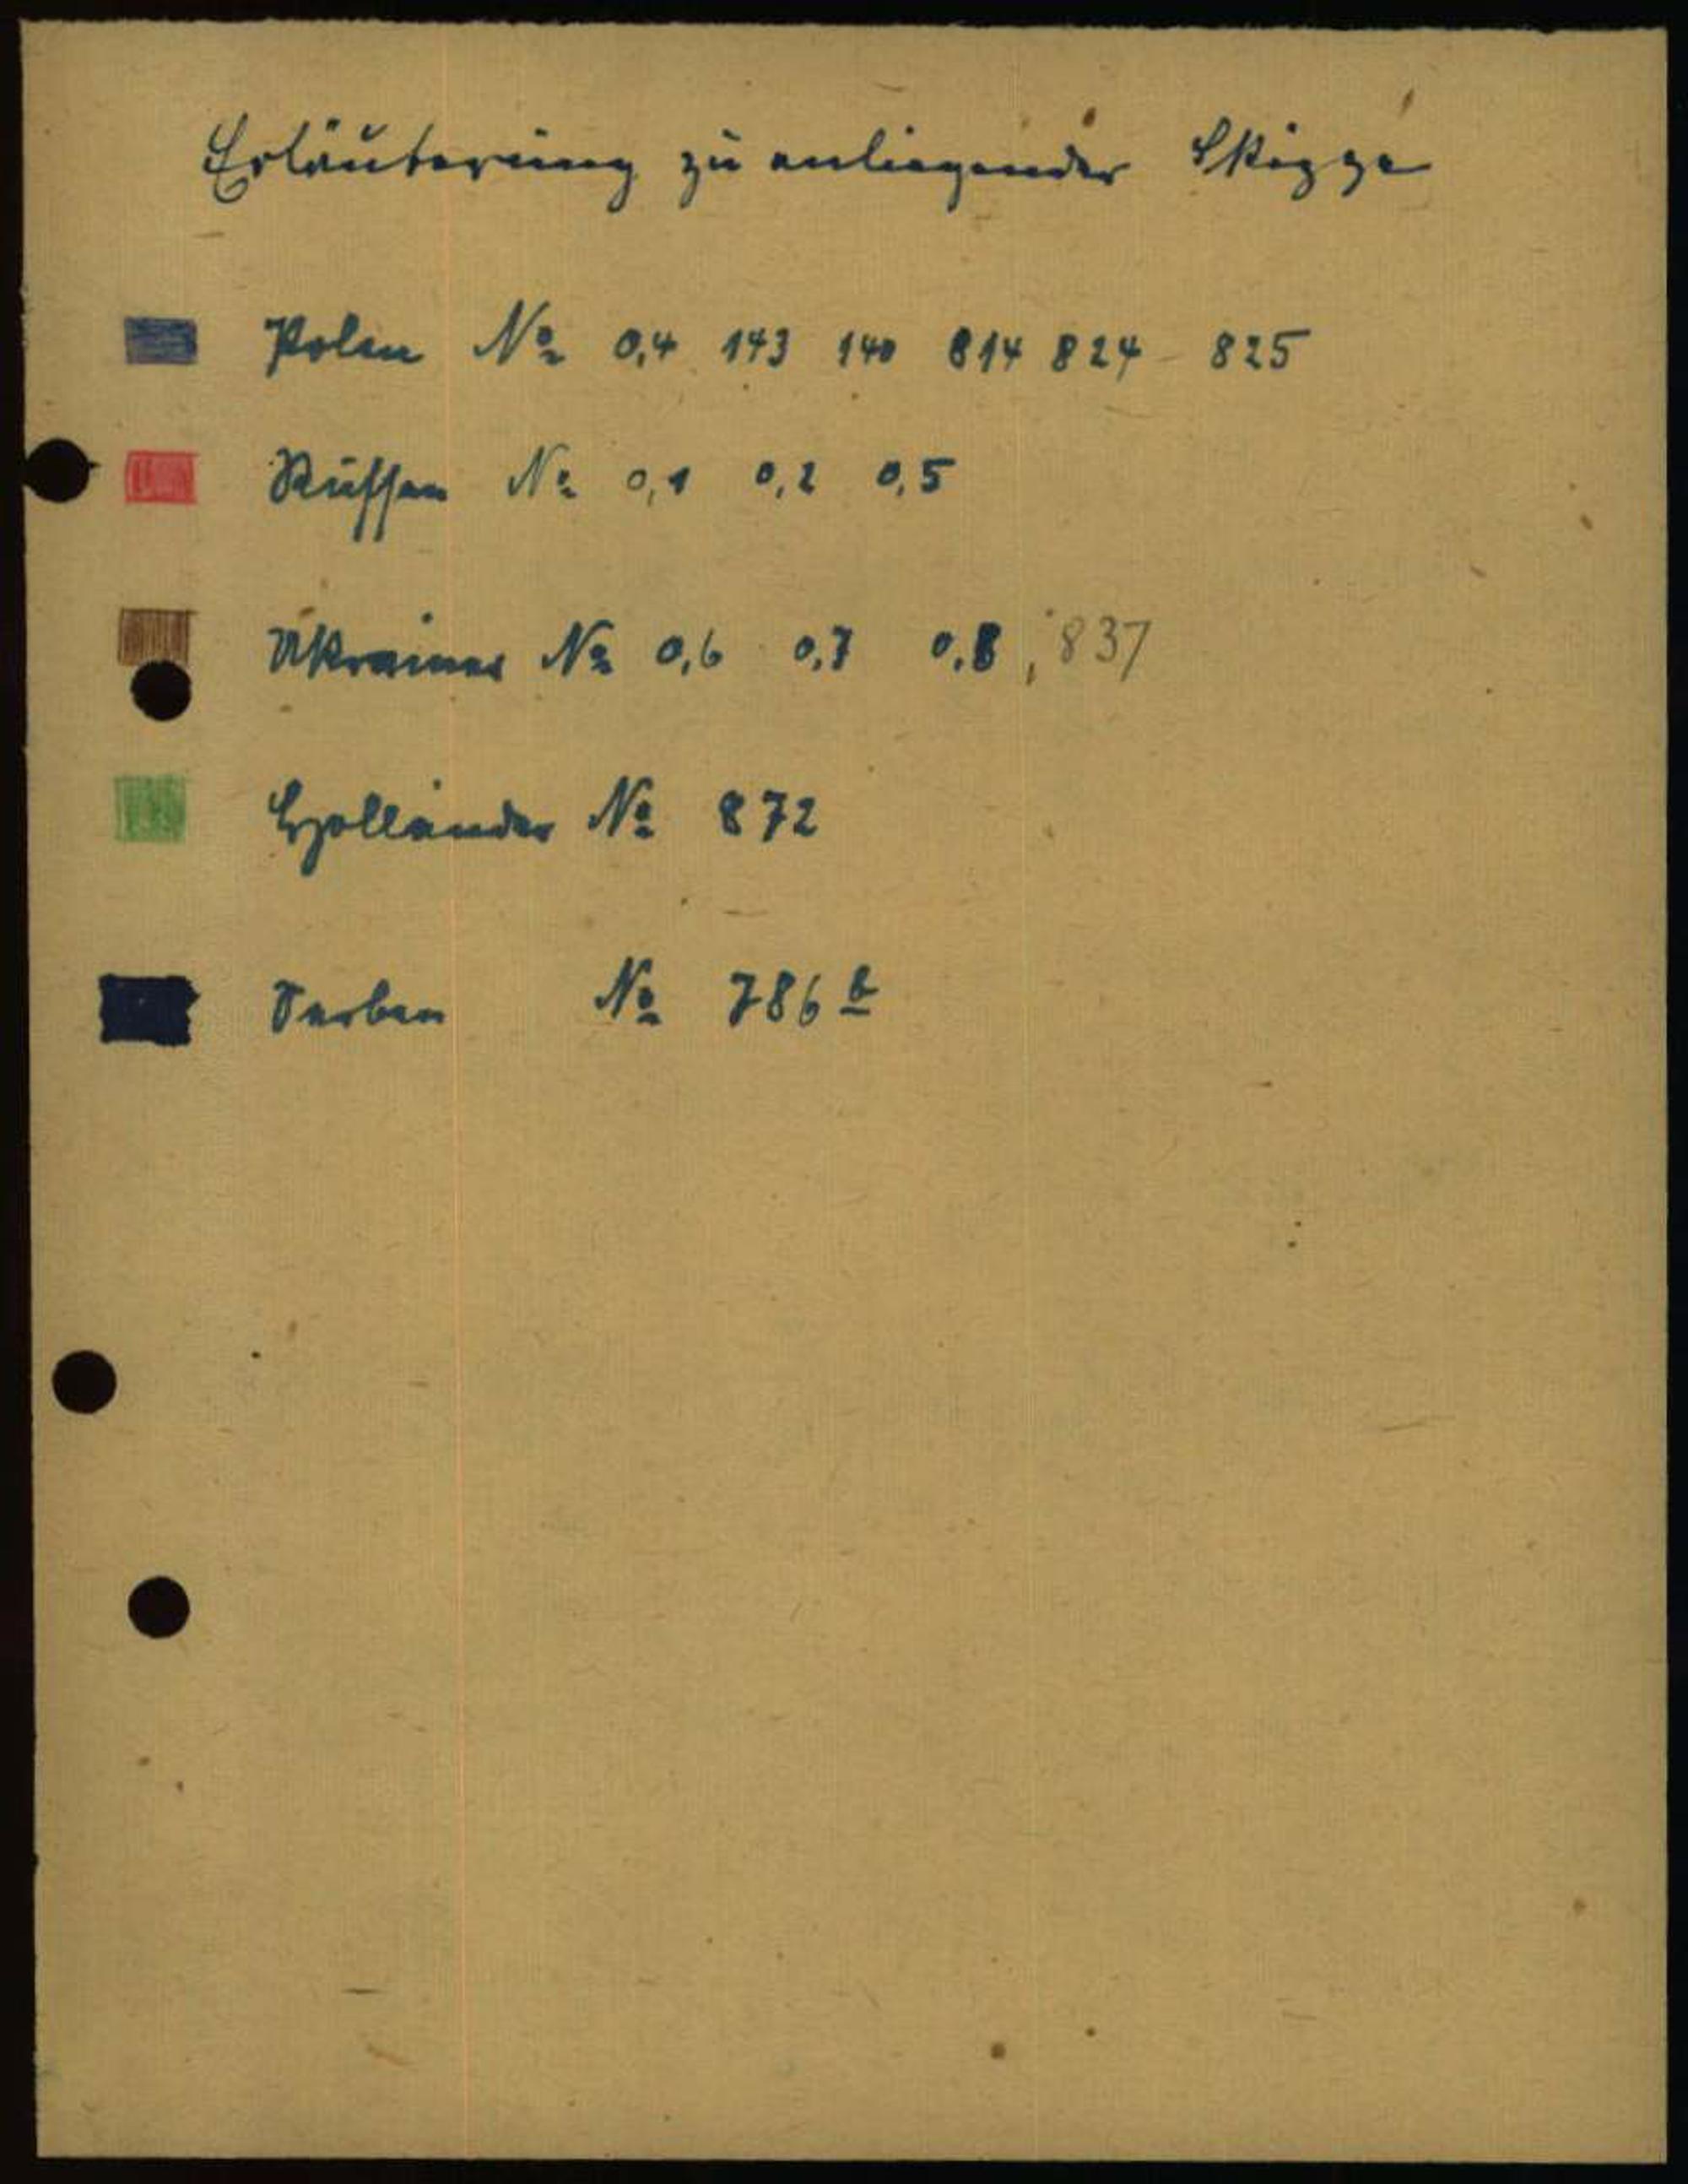 Erläuterung zu anliegender Skizze
Polen № 0,4 143 140 814 824 825
Russen № 0,1 0,2 0,5
Ukrainer № 0,6 0,7 0,8, 837
Holländer № 872
Serben № 786 b